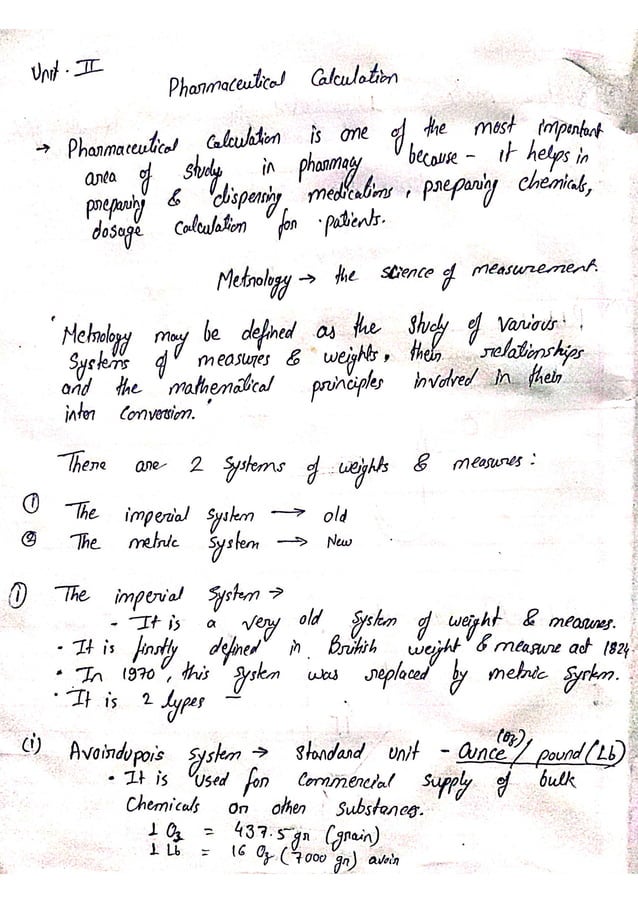 Unit. II
Pharmaceutical Calculation
→ Pharmaceutical Calculation is one of the most important
area of study in pharmacy because - it helps in
preparing & dispensing medications, preparing chemicals,
dosage calculation for patients.
Metrology → the science of measurement.
'Metrology may be defined as the study of various
Systems of measures & weights, their relationships
and the mathematical principles involved in their
inter conversion.'
There are 2 systems of weights & measures:
① The imperial system → old
② The metric system → New
① The imperial System →
- It is a very old system of weight & measures.
• It is firstly defined in British weight & measure act 1824.
• In 1970, this system was replaced by metric system.
• It is 2 types -
(i) Avoirdupois system → standard unit - Ounce (Oz) / pound (Lb)
• It is used for commercial supply of bulk
Chemicals or other substances.
1 Oz = 437.5 gr (grain)
1 Lb = 16 Oz (7000 gr) avoir